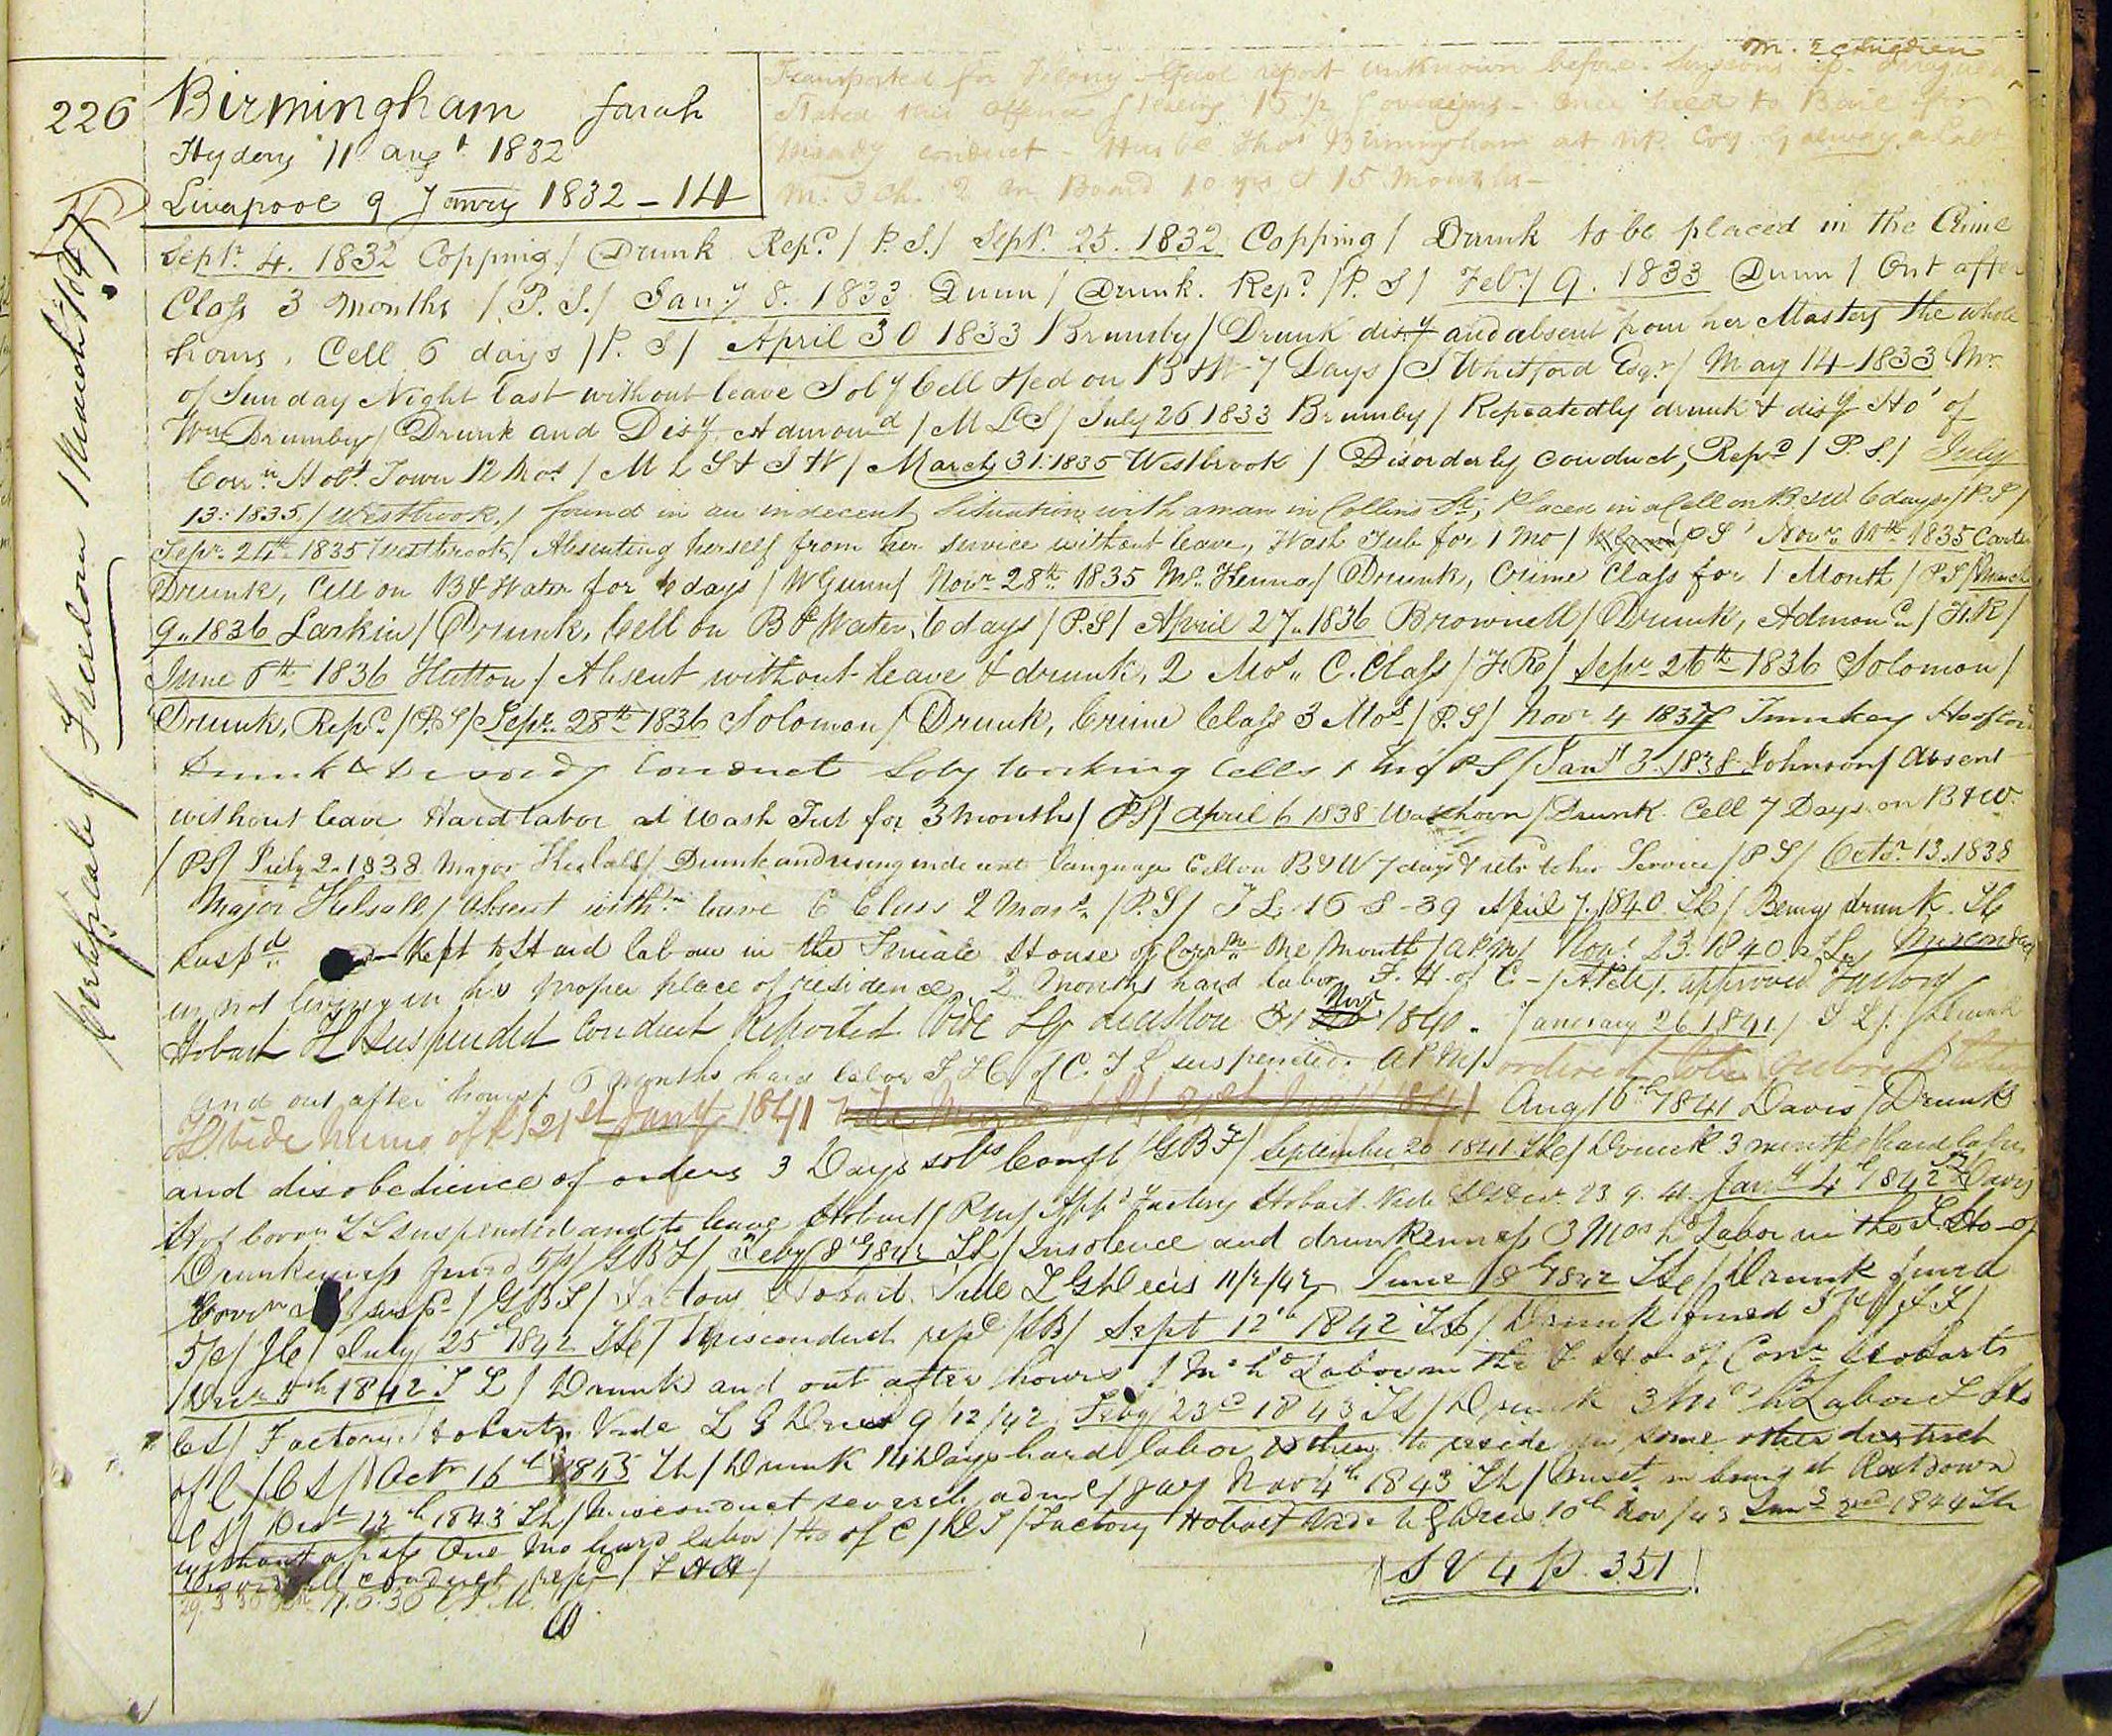 m. 2 children
226 Birmingham Sarah
Hydery 11 Augt 1832
Liverpool 9 Janry 1832 – 14
Transported for Felony Gaol report unknown before. Surgeons rep.
Stated this Offence Stealing 15 1/2 Sovereigns – Once held to Bail for
conduct – Husbd Thos Birmingham at N.P. Coy Galway a Labr
m. 3 ch. 2 on Board 10 yrs & 15 Months –
Septr 4. 1832 Copping / Drunk Repd / P. S. / Septr 25. 1832 Copping / Drunk to be placed in the Crime
Class 3 Months / P. S. / Jany 8. 1833 Dunn / Drunk. Repd / P. S / Feby 9. 1833 Dunn / Out after
hours, Cell 6 days / P. S / April 30 1833 Brumby / Drunk disy and absent from her Masters the whole
of Sunday Night last without leave Soly Cell fed on B & W 7 Days / J Whitford Esqr / May 14 – 1833 Mr
Wm Brumby / Drunk and Disy Admond / M L S / July 26 1833 Brumby / Repeatedly drunk & disy Ho of
Corrn Hobt Town 12 Mos / M L S & J W / March 31: 1835 Westbrook / Disorderly conduct, Repd / P. S. / July
13: 1835 / Westbrook / found in an indecent Situation with a man in Collins St, Placed in a Cell on B & W 6 days / P. S /
Sepr 24th 1835 Westbrook / Absenting herself from her service without leave, Wash Tub for 1 Mo / P S / Novr 10th 1835 Carter
Drunk, Cell on B & Water for 6 days / W Gunn / Novr 28th 1835 McKenna / Drunk, Crime Class for 1 Month / P. S / March
9. 1836 Larkin / Drunk, Cell on B & Water, 6 days / P. S / April 27. 1836 Brownell / Drunk, Admond / F. R /
June 6th 1836 Hutton / Absent without leave & drunk, 2 Mos C. Class / F. R / Sepr 26th 1836 Solomon /
Drunk, Repd / P. S / Sepr 28th 1836 Solomon / Drunk, Crime Class 3 Mos / P. S / Novr 4 1837 Turnkey
Drunk & Disordy Conduct Soly Working Cells 1 Mo / P S / Jany 3. 1838 Johnson / Absent
without leave Hard labor at Wash Tub for 3 months / P S / April 6 1838 / Drunk Cell 7 Days on B & W.
/ P S / July 2. 1838 Major Kelsall / Drunk and using indecent language Cell on B & W 7 days & retd to her Service / P S / Octr 13. 1838
Major Kelsall / Absent witht leave C Class 2 Mons / P. S / T L 16-8-39 April 7. 1840 TL / Being drunk. TL
suspd Kept to Hard labour in the Female House of Corrn One Month / A P M / Novr 23. 1840 TL Misconduct
in not living in her proper place of residence 2 Months hard labor F. H of C – / approved Factory
Hobart TL suspended Conduct Reported Vide Lt Gr decision Novr 1840. January 26 1841 / T L / Drunk
and out after hours / 6 months hard labor F H of C. T L suspended. A P M / ordered to be
Vide Memo of 21st Jany 1841 Aug 16th 1841 Davis / Drunk
and disobedience of orders 3 Days solo Conft / G B F / September 20 1841 TL / Drunk 3 months hard labr
H of Corrn TL suspended and to leave Hobart / Appd Factory Hobart Vide 23. 9. 41. Jany 4th 1842 Davis
Drunkenness fined 5/ / G B F / Feby 8th 1842 TL / Insolence and drunkenness 3 Mos hd Labor in the F. Ho of
Corrn TL suspd / G B F / Factory Hobart Vide L Gs Decis 11/2/42 June 18th 1842 TL / Drunk fined
5/ / July 25th 1842 TL / Misconduct repd / Sept 12th 1842 TL / Drunk fined 5/
/ Decr 5th 1842 T L / Drunk and out after hours 1 Mo hd Labor in the F Ho of Corrn Hobart
/ Factory Hobart Vide L G Decis 9/12/42 Feby 23d 1843 TL / Drunk 3 Mos hd Labor F Ho
of C / Octr 16th 1843 TL / Drunk 14 Days hard labor & then to reside in some other district
/ Octr 12th 1843 TL / Misconduct severely admd / Novr 4th 1843 TL / Misct in being at
without a pass One Mo hard labor / Ho of C / Factory Hobart Vide L G Decis 10th Nov / 43 Jany 2nd 1844 TL
conduct repd /
S V 4 P. 351
Certificate of Freedom / March 1847